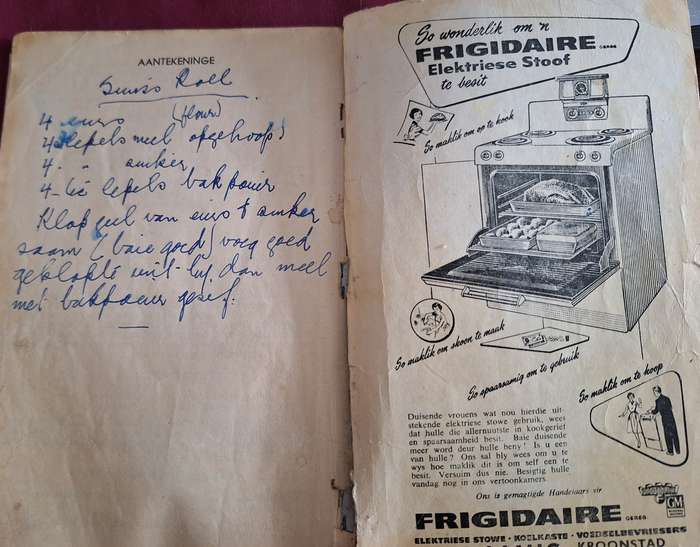 AANTEKENINGE
Swiss Roll
4 eiers (flour)
4 lepels meel opgehoop
4 " suiker
4 tee lepels bakpoeier
Klop geel van eiers & suiker
saam (baie goed) voeg goed
geklopte wit by, dan meel
met bakpoeier gesif.
So wonderlik om 'n
FRIGIDAIRE GEREG.
Elektriese Stoof
te besit
So maklik om op te kook
So maklik om skoon te maak
So spaarsamig om te gebruik
So maklik om te koop
Duisende vrouens wat nou hierdie uit-
stekende elektriese stowe gebruik, weet
dat hulle die allernuutste in kookgerief
en spaarsaamheid besit. Baie duisende
meer word deur hulle beny! Is u een
van hulle? Ons sal bly wees om u te
wys hoe maklik dit is om self een te
besit. Versuim dus nie. Besigtig hulle
vandag nog in ons vertoonkamers
Ons is gemagtigde Handelaars vir
GM
FRIGIDAIRE GEREG.
ELEKTRIESE STOWE • KOELKASTE • VOEDSELBEVRIESERS
KROONSTAD